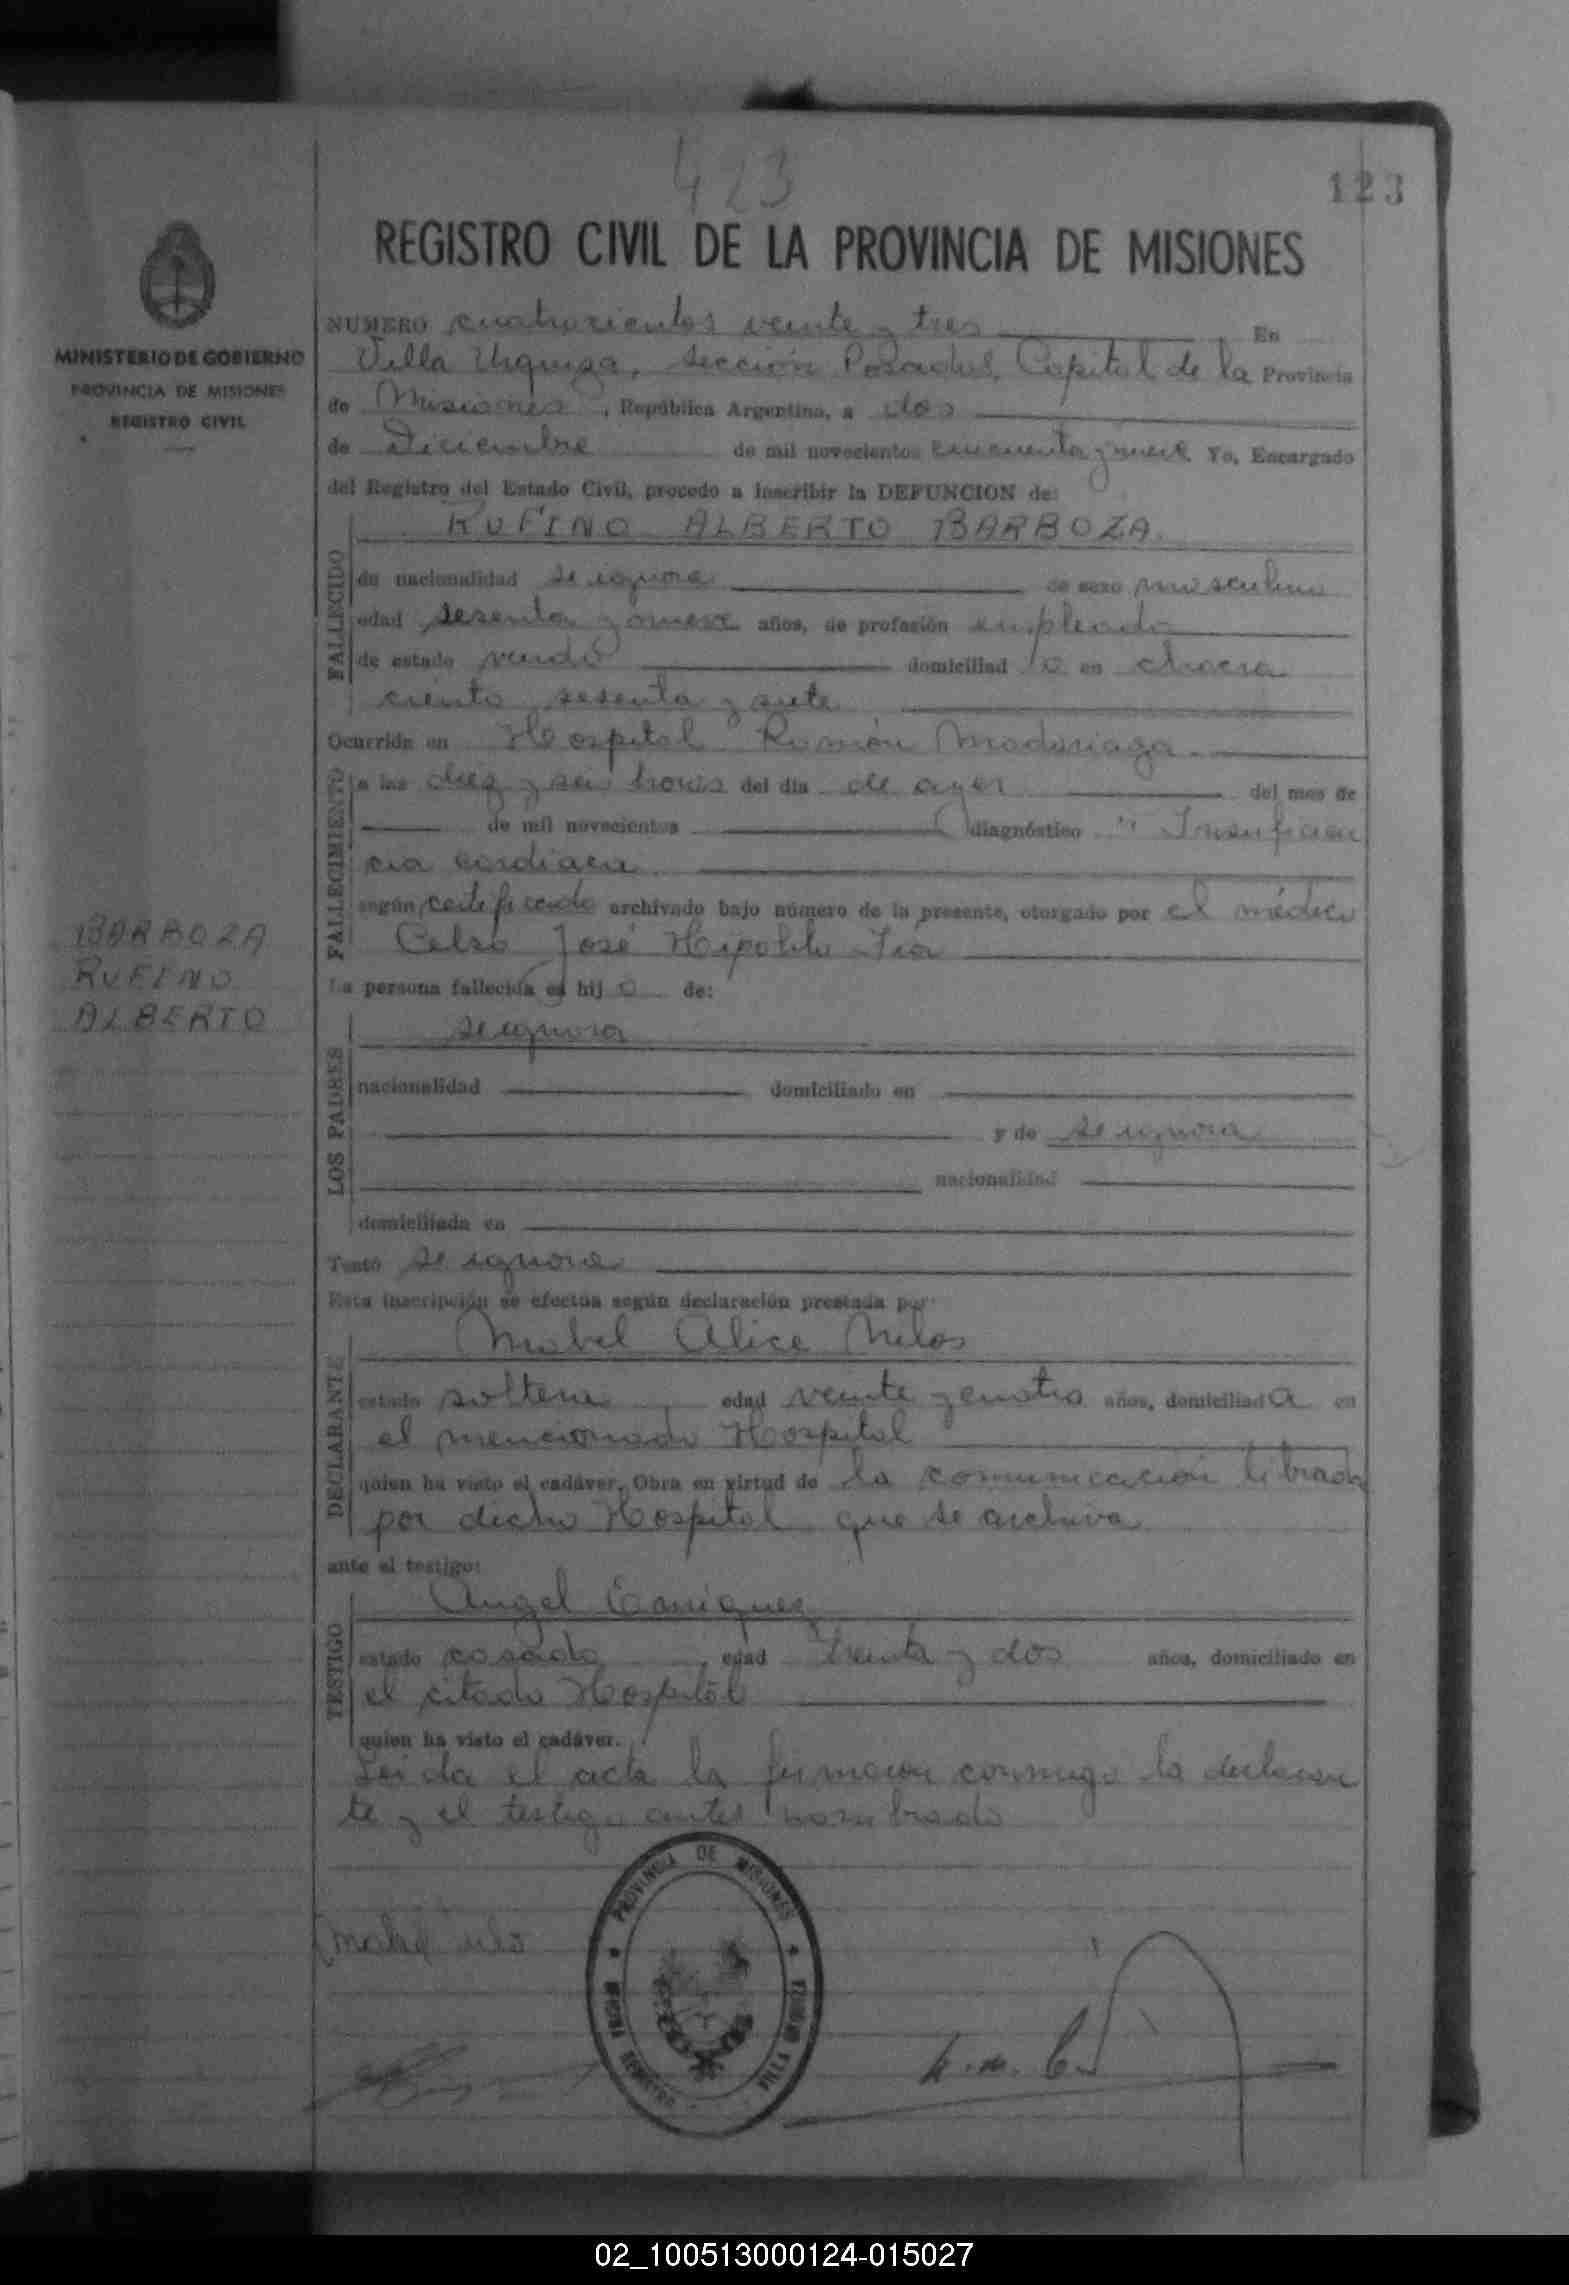 423
123
REGISTRO CIVIL DE LA PROVINCIA DE MISIONES
MINISTERIO DE GOBIERNO
PROVINCIA DE MISIONES
REGISTRO CIVIL
BARBOZA
RUFINO
ALBERTO
NUMERO cuatrocientos veinte y tres En
Villa Urquiza, sección Posadas, Capital de la Provincia
de Misiones, República Argentina, a dos
de Diciembre de mil novecientos cincuenta y nueve Yo, Encargado
del Registro del Estado Civil, procedo a inscribir la DEFUNCION de:
RUFINO ALBERTO BARBOZA
FALLECIDO
de nacionalidad se ignora de sexo masculino
edad sesenta y nueve años, de profesión empleado
de estado viudo domiciliad o en chacra
ciento sesenta y siete
Ocurrido en Hospital Ramón Madariaga
FALLECIMIENTO
a las diez y seis horas del día de ayer del mes de
de mil novecientos diagnóstico "Insuficien
cia cardiaca
según certificado archivado bajo número de la presente, otorgado por el médico
Celso José Hipolito
La persona fallecida es hij o de:
LOS PADRES
se ignora
nacionalidad domiciliado en
y de se ignora
nacionalidad
domiciliada en
Testó se ignora
Esta inscripción se efectúa según declaración prestada por:
DECLARANTE
Mabel Alice Melos
estado soltera edad veinte y cuatro años, domiciliad a en
el mencionado Hospital
quien ha visto el cadáver. Obra en virtud de la comunicación librada
por dicho Hospital que se archiva
ante el testigo:
TESTIGO
Angel
estado casado edad treinta y dos años, domiciliado en
el citado Hospital
quien ha visto el cadáver.
Leida el acta la firmaron conmigo la declaran
te y el testigo antes nombrado
PROVINCIA DE MISIONES
VILLA URQUIZA
02_100513000124-015027